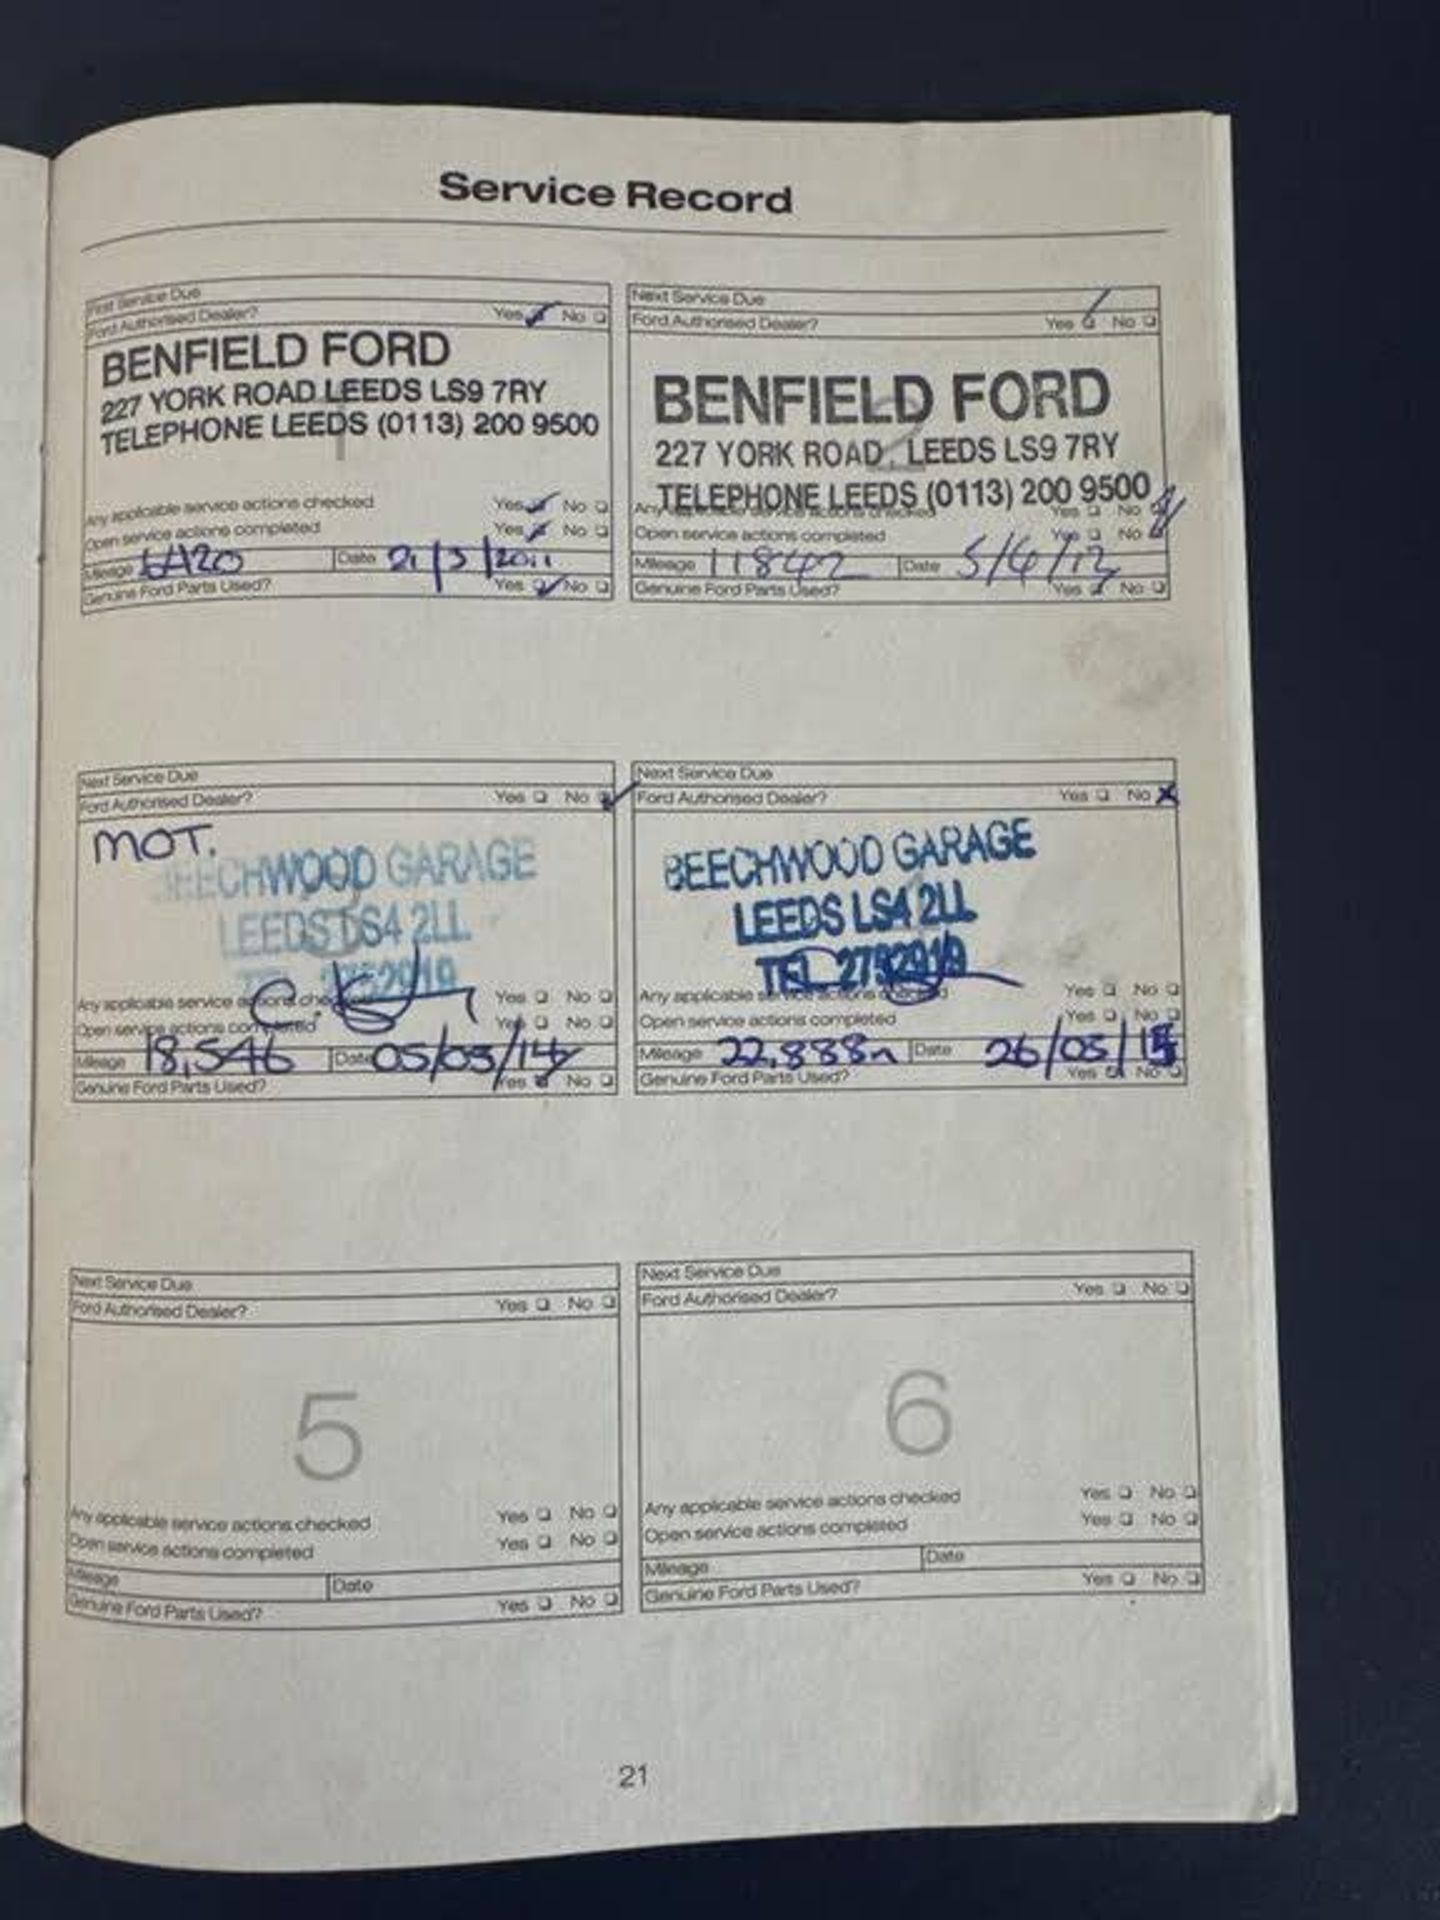 Service Record
First Service Due
Ford Authorised Dealer? Yes No
BENFIELD FORD
227 YORK ROAD LEEDS LS9 7RY
TELEPHONE LEEDS (0113) 200 9500
1
Any applicable service actions checked Yes No
Open service actions completed Yes No
Mileage Date 21/3/2011
Genuine Ford Parts Used? Yes No
Next Service Due
Ford Authorised Dealer? Yes No
BENFIELD FORD
2
227 YORK ROAD, LEEDS LS9 7RY
TELEPHONE LEEDS (0113) 200 9500
Any applicable service actions checked Yes No
Open service actions completed Yes No
Mileage 11842 Date
Genuine Ford Parts Used? Yes No
Next Service Due
Ford Authorised Dealer? Yes No
MOT.
BEECHWOOD GARAGE
LEEDS LS4 2LL
TEL 2752919
Any applicable service actions checked Yes No
Open service actions completed Yes No
Mileage 18,546 Date 05/03/14
Genuine Ford Parts Used? Yes No
Next Service Due
Ford Authorised Dealer? Yes No
BEECHWOOD GARAGE
LEEDS LS4 2LL
TEL 2752919
Any applicable service actions checked Yes No
Open service actions completed Yes No
Mileage 22,888 Date 26/03/15
Genuine Ford Parts Used? Yes No
Next Service Due
Ford Authorised Dealer? Yes No
5
Any applicable service actions checked Yes No
Open service actions completed Yes No
Mileage Date
Genuine Ford Parts Used? Yes No
Next Service Due
Ford Authorised Dealer? Yes No
6
Any applicable service actions checked Yes No
Open service actions completed Yes No
Mileage Date
Genuine Ford Parts Used? Yes No
21